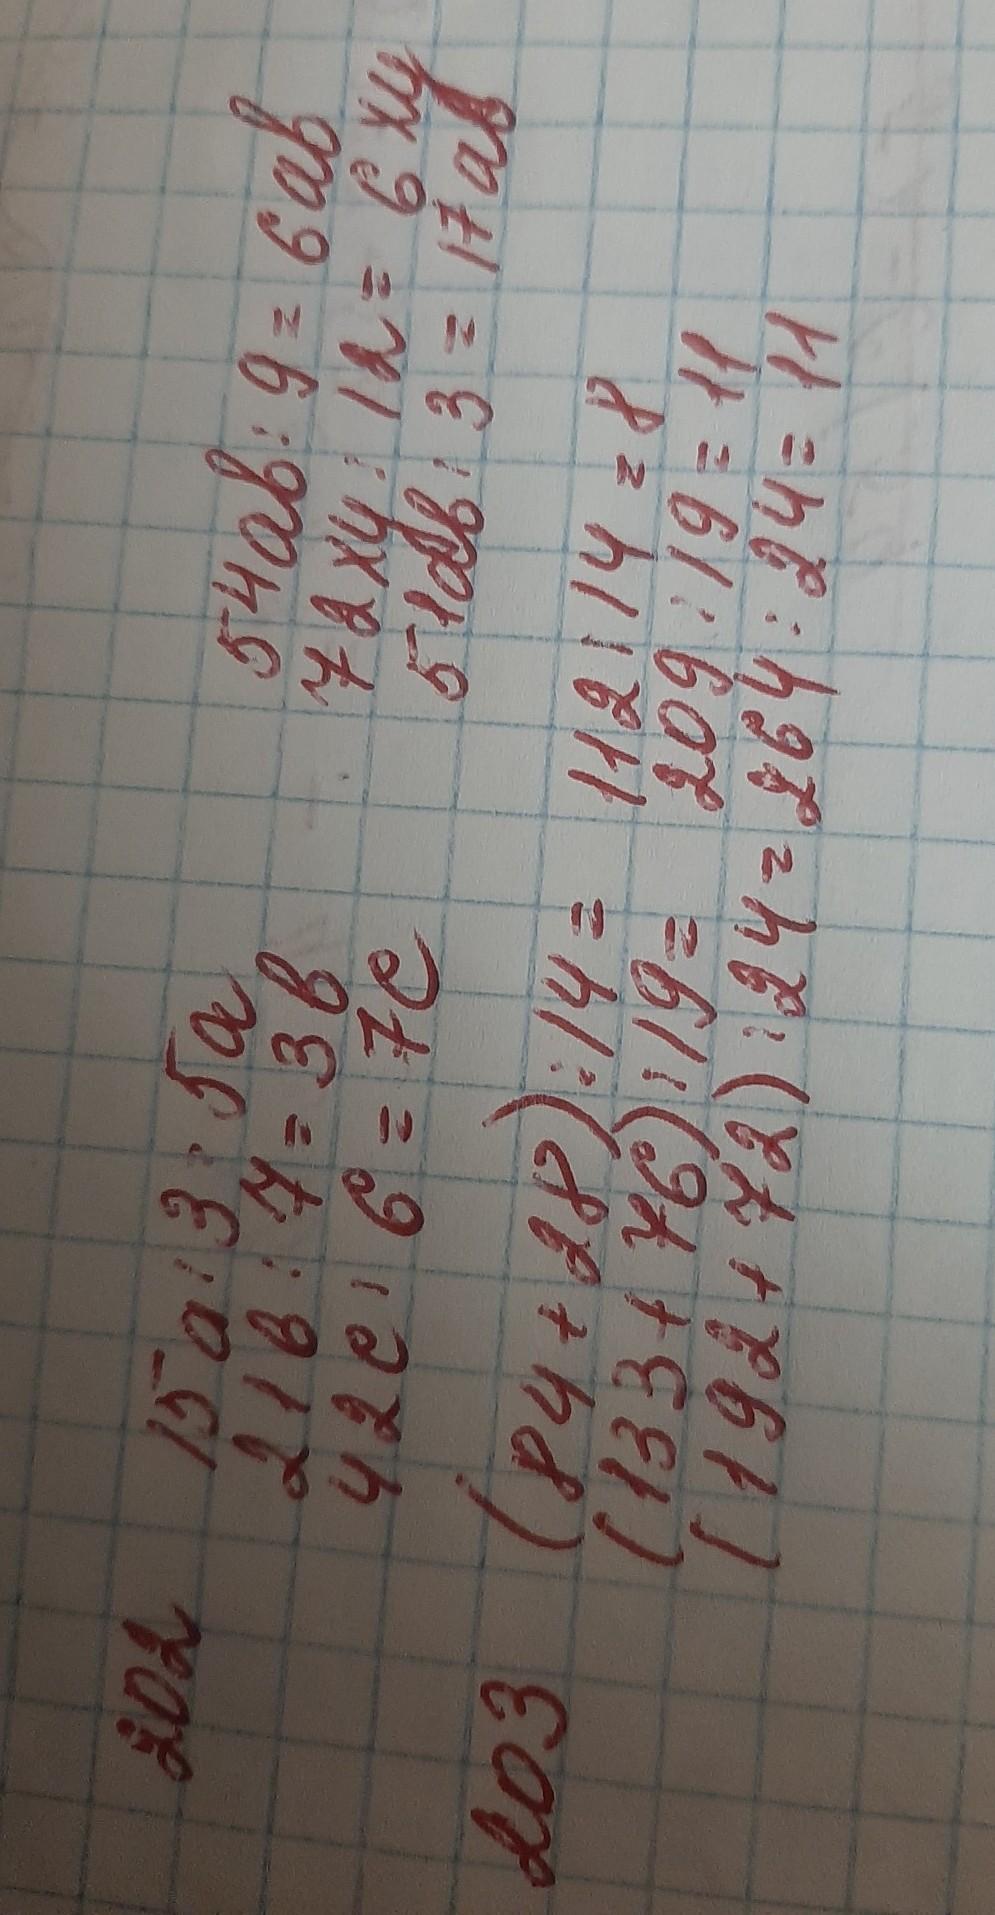 202 15a : 3 : 5a 54ab : 9 = 6ab
21в : 7 = 3в 72xy : 12 = 6xy
42c : 6 = 7c 51ab : 3 = 17ab
203 (84 + 28) : 14 = 112 : 14 = 8
(133 + 76) : 19 = 209 : 19 = 11
(192 + 72) : 24 = 264 : 24 = 11